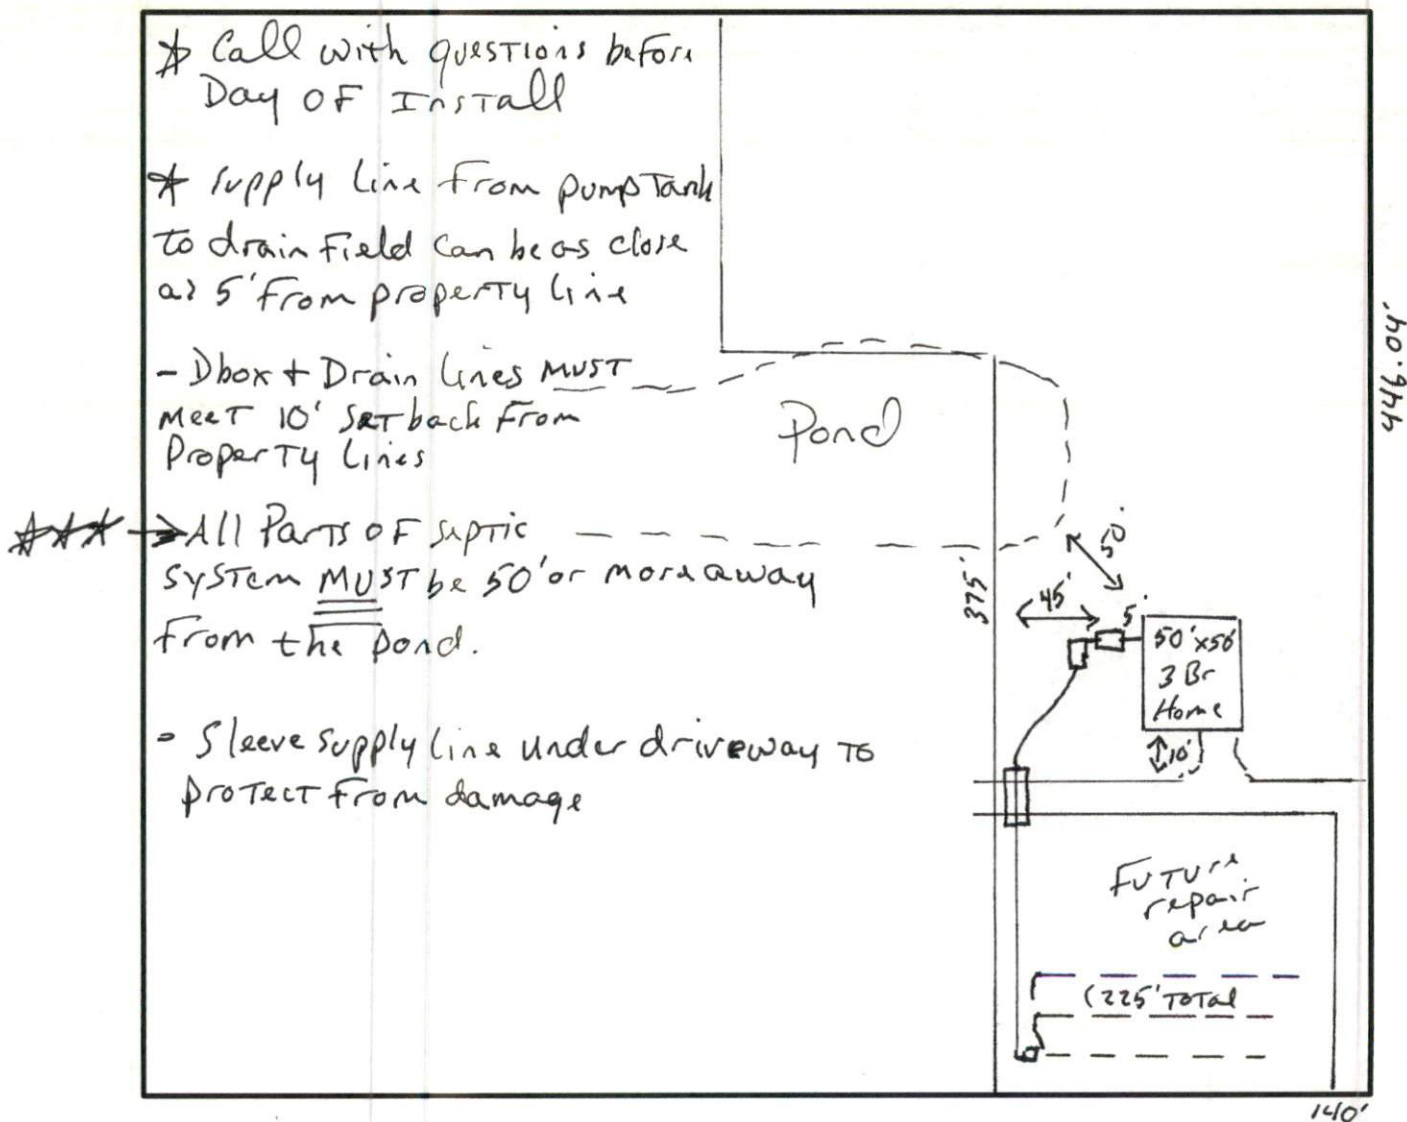 * Call with questions before
Day OF Install
* supply line from pump Tank
to drain field can be as close
as 5' from property line
- Dbox + Drain lines MUST
meet 10' setback from
Property Lines
*** → All Parts OF septic
system MUST be 50' or more away
from the pond.
- Sleeve supply line under driveway to
protect from damage
Pond
446.04'
375'
50'
45'
5'
50'x50'
3 Br
Home
10'
Future
repair
area
(225' Total
140'